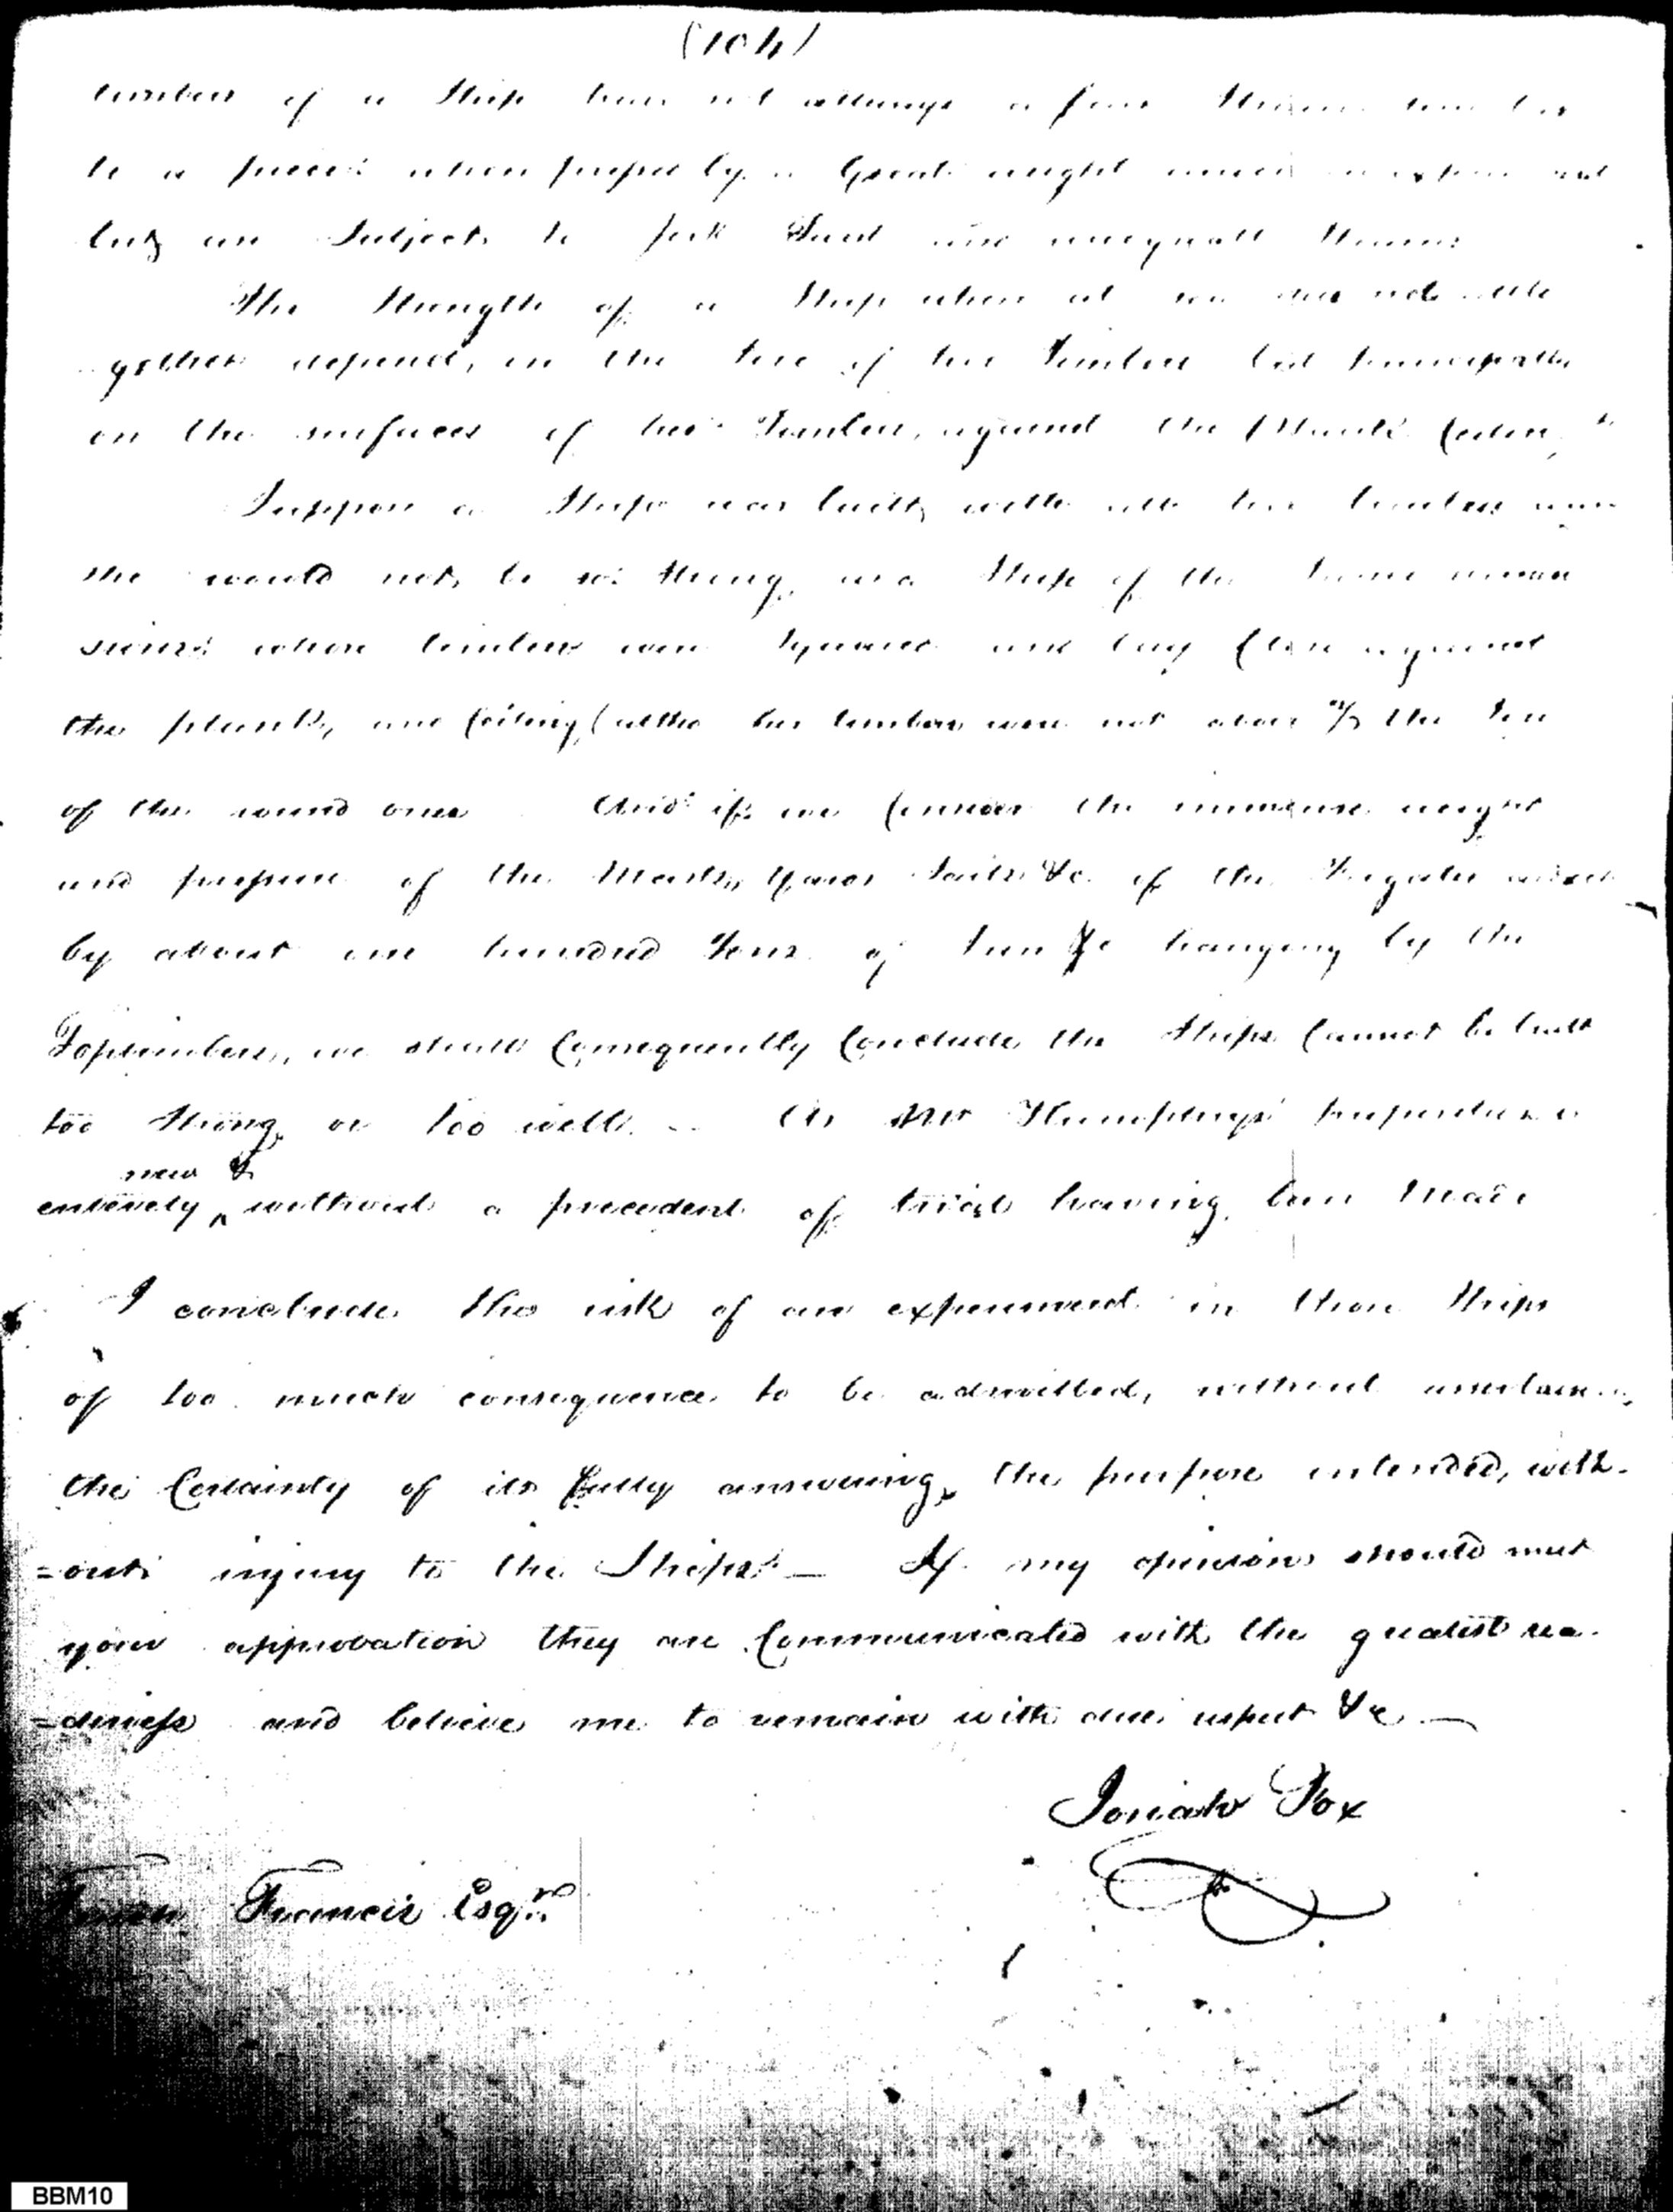 (104)
timbers of a Ship have not always a fair
to a when properly a Great weight
but, are Subject to and unequall Strains
The Strength of a Ship when at sea does not alto
gether depend, on the size of her Timbers but principally
on the surfaces of her Timbers, against the Plank Ceiling
Suppose a Ship was built, with all her timbers
she would not, be so strong, as a Ship of the same dimen
sions whose timbers were Squared and lay Close against
the plank, and Ceiling, (altho her timbers were not above 2/3 the size
of the round ones And if we Consider the immense weight
and pressure of the Masts, Yards Sails &c. of the Frigates
by about one hundred Tons of Guns &c hanging by the
Toptimbers, we should Consequently Conclude the Ships Cannot be built
too Strong, or too well. — As Mr Humphreys' is
new &
entirely ^ without a precedent of trial having, been Made
I conclude the risk of an experiment in these Ships
of too much consequence to be admitted, without
the Certainty of its fully answering, the purpose intended, with-
=out injury to the Ships. — If my opinions should meet
your approbation they are Communicated with the greatest rea-
=diness and believe me to remain with due respect &c —
Josiah Fox
Francis Esqr.
BBM10